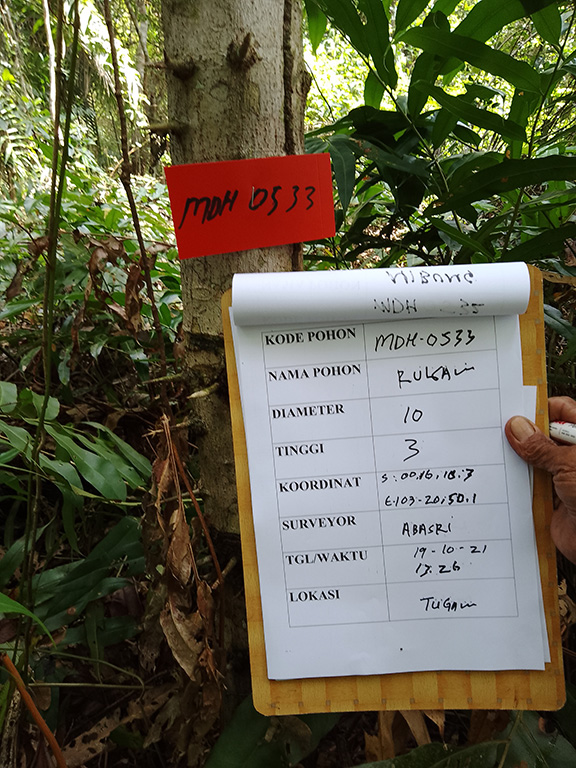 MDH 0533
KODE POHON MDH-0533
NAMA POHON RUKAM
DIAMETER 10
TINGGI 3
KOORDINAT S:00.16.18.3
E:103-20;50.1
SURVEYOR ABASRI
TGL/WAKTU 19-10-21
13.26
LOKASI